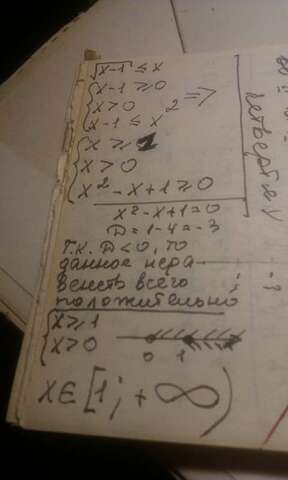 √x-1 ≤ x
{x-1 ≥ 0
x > 0
x-1 ≤ x² =>
{x ≥ 1
x > 0
x² - x + 1 ≥ 0
x² - x + 1 = 0
D = 1 - 4 = -3
т.к. D < 0, то
данное нера-
венств всего
положительно
{x ≥ 1
x > 0
0 1
x ∈ [1; + ∞)
четверти